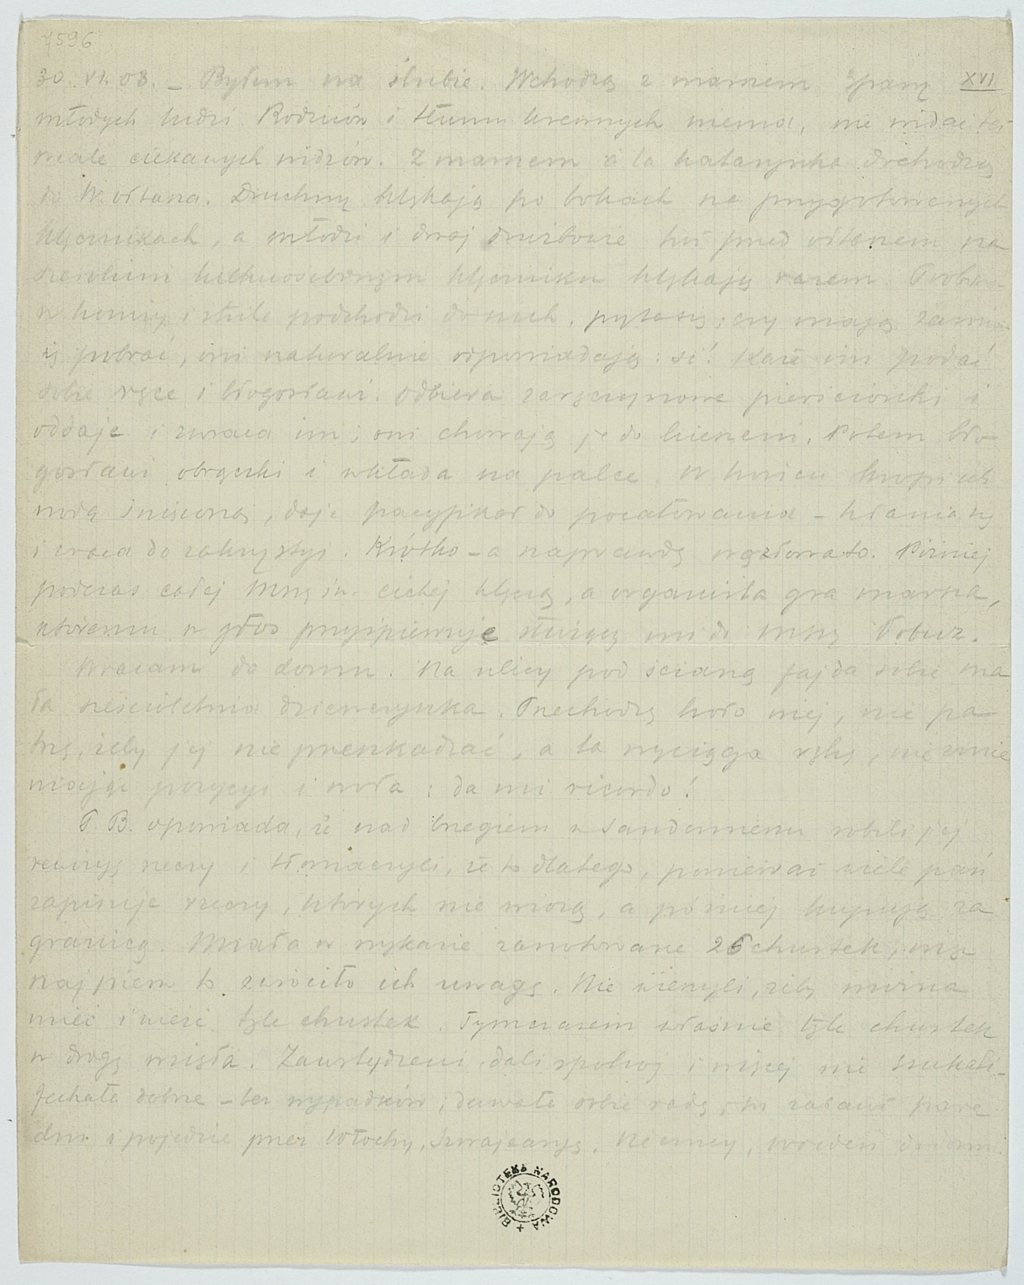 7596
30. VI. 08. – Byłem na ślubie. Wchodzą z marszem parę XVI
młodych ludzi. Rodziców i tłumu krewnych niema, nie widać też
wiele ciekawych widzów. Z marszem à la katarynka dochodzą
do W. ołtarza. Druchny klękają po bokach na przygotowanych
klęcznikach, a młodzi i dwaj drużbowie tuż przed ołtarzem na
szerokim kilkuosobowym klęczniku klękają razem.
w komży i stule podchodzi do nich, pyta się, czy mają
ię pobrać, oni naturalnie odpowiadają: si! Każe im podać
sobie ręce i błogosławi. Odbiera zaręczynowe pierścionki i
oddaje i zwraca im; oni chowają je do kieszeni. Potem bło-
gosławi obrączki i wkłada na palce. W końcu kropi ich
wodą święconą, daje pacyfikał do pocałowania – kłania się
i wraca do zakrystyi. Krótko – a naprawdę węzłowato. Później
podczas całej Mszy św. cichej klęczą, a organista gra marsza,
któremu w głos przyśpiewuje służący mi do Mszy
Wracam do domu. Na ulicy pod ścianą fajda sobie ma
ła sześcioletnia dziewczynka. Przechodzę koło niej, nie pa-
trzę, żeby jej nie przeszkadzać, a ta wyciąga rękę, nie zmie
niając pozycyi i woła: da mi ricordo!
P. B. opowiada, że nad brzegiem w Sandomierzu robili jej
rewizyę rzeczy i tłomaczyli, że to dlatego, ponieważ wiele pań
zapisuje rzeczy, których nie wiozą, a później kupują za
granicą. Miała w wykazie zanotowane 26 chustek, więc
najpierw to zwróciło ich uwagę. Nie wierzyli, żeby można
mieć i wieźć tyle chustek. Tymczasem właśnie tyle chustek
w drogę wzięła. Zawstydzeni dali spokój i więcej nie szukali.
Jechała dobrze – bez wypadków, dawała sobie radę, tu zabawi parę
dni i pojedzie przez Włochy, Szwajcaryę, Niemcy, Wiedeń
BIBLIOTEKA NARODOWA